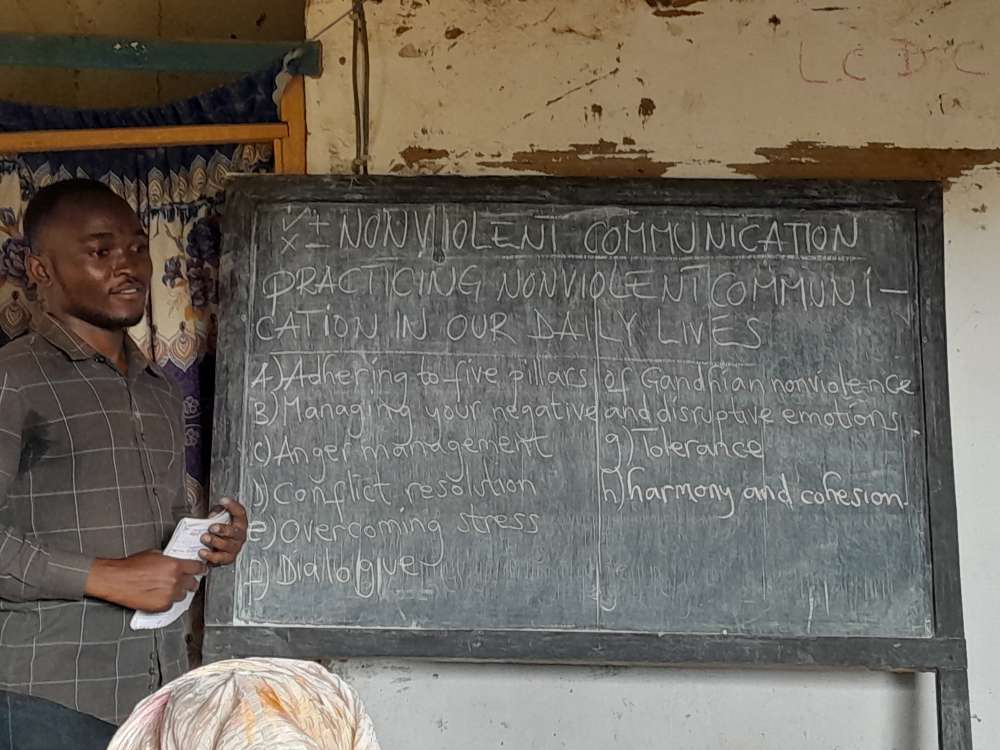 L.C D.C
✓ + NONVIOLENT COMMUNICATION
× –
PRACTICING NONVIOLENT COMMUNI-
CATION IN OUR DAILY LIVES
A) Adhering to five pillars of Gandhian nonviolence
B) Managing your negative and disruptive emotions.
c) Anger management
g) Tolerance
D) Conflict resolution
h) harmony and cohesion.
e) Overcoming stress
f) Diallogue